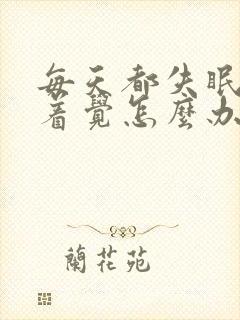 每天都失眠
着覺怎麼办
蘭花苑